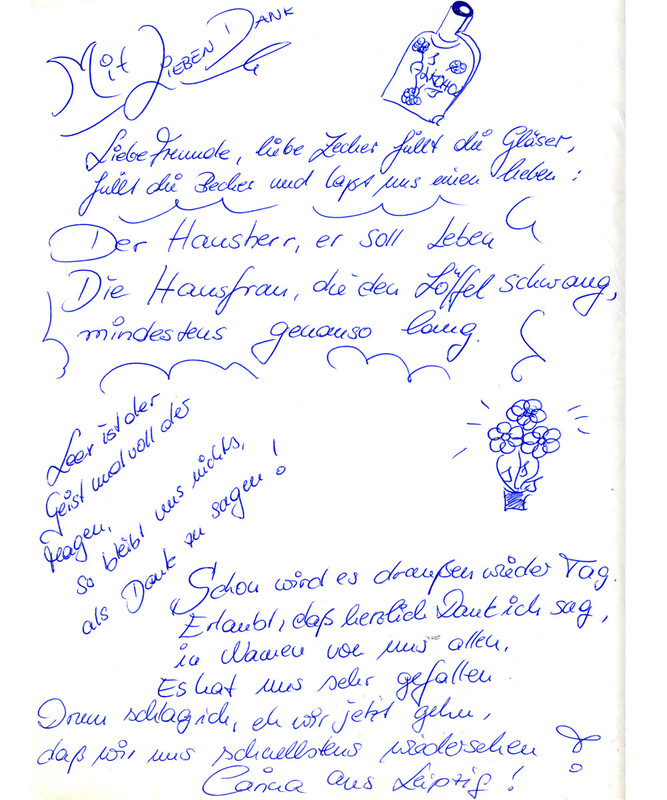 Mit Lieben Dank
ALKOHOL
Liebe Freunde, liebe Zecher füllt die Gläser,
füllt die Becher und laßt uns einen heben:
Der Hausherr, er soll Leben
Die Hausfrau, die den Löffel schwang,
mindestens genauso lang.
Leer ist der
Geist und voll der
Magen,
so bleibt uns nichts,
als Dank zu sagen!
Schon wird es draußen wieder Tag.
Erlaubt, daß herzlich Dank ich sag,
in Namen von uns allen.
Es hat uns sehr gefallen
Drum schlag ich, eh wir jetzt gehn,
daß wir uns schnellstens wiedersehen!
aus Leipzig!